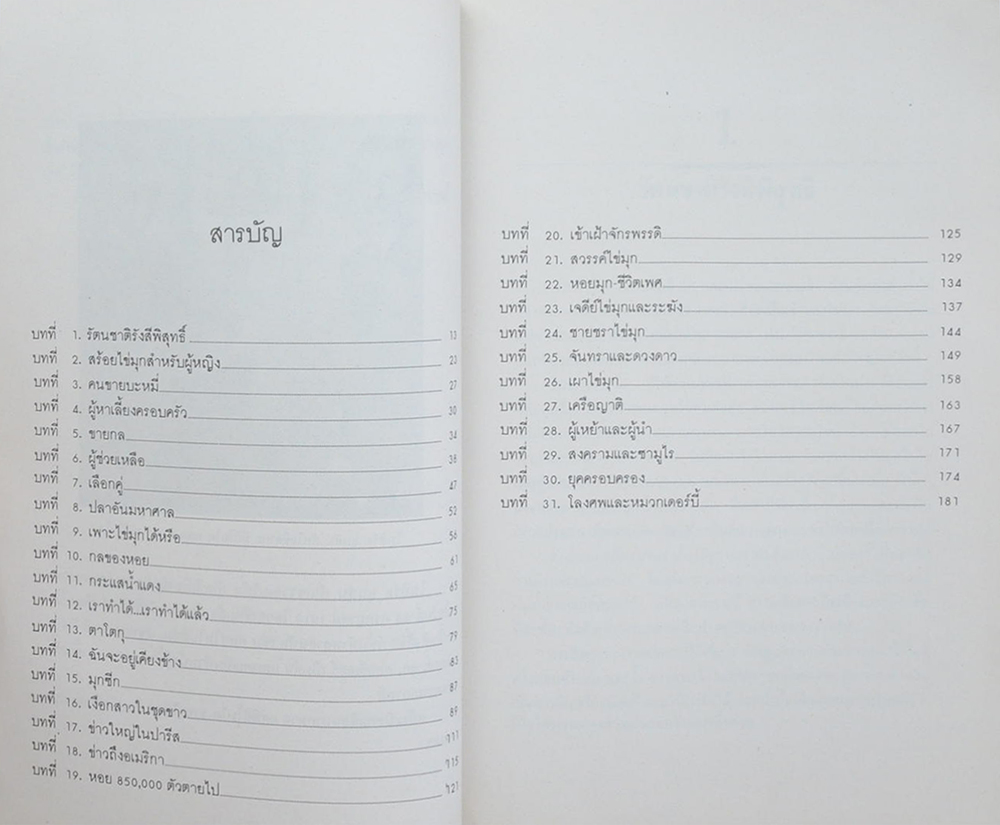 สารบัญ
บทที่ 1. รัตนชาติรังสีพิสุทธิ์ 13
บทที่ 2. สร้อยไข่มุกสำหรับผู้หญิง 23
บทที่ 3. คนขายบะหมี่ 27
บทที่ 4. ผู้หาเลี้ยงครอบครัว 30
บทที่ 5. ชายกล 34
บทที่ 6. ผู้ช่วยเหลือ 38
บทที่ 7. เลือกคู่ 47
บทที่ 8. ปลาอันมหาศาล 52
บทที่ 9. เพาะไข่มุกได้หรือ 56
บทที่ 10. กลของหอย 61
บทที่ 11. กระแสน้ำแดง 65
บทที่ 12. เราทำได้...เราทำได้แล้ว 75
บทที่ 13. ตาโตกุ 79
บทที่ 14. ฉันจะอยู่เคียงข้าง 83
บทที่ 15. มุกซีก 87
บทที่ 16. เงือกสาวในชุดขาว 89
บทที่ 17. ข่าวใหญ่ในปารีส 111
บทที่ 18. ข่าวถึงอเมริกา 115
บทที่ 19. หอย 850,000 ตัวตายไป 121
บทที่ 20. เข้าเฝ้าจักรพรรดิ 125
บทที่ 21. สวรรค์ไข่มุก 129
บทที่ 22. หอยมุก-ชีวิตเพศ 134
บทที่ 23. เจดีย์ไข่มุกและระฆัง 137
บทที่ 24. ชายชราไข่มุก 144
บทที่ 25. จันทราและดวงดาว 149
บทที่ 26. เผาไข่มุก 158
บทที่ 27. เครือญาติ 163
บทที่ 28. ผู้เหย้าและผู้นำ 167
บทที่ 29. สงครามและซามูไร 171
บทที่ 30. ยุคครอบครอง 174
บทที่ 31. โลงศพและหมวกเดอร์บี้ 181